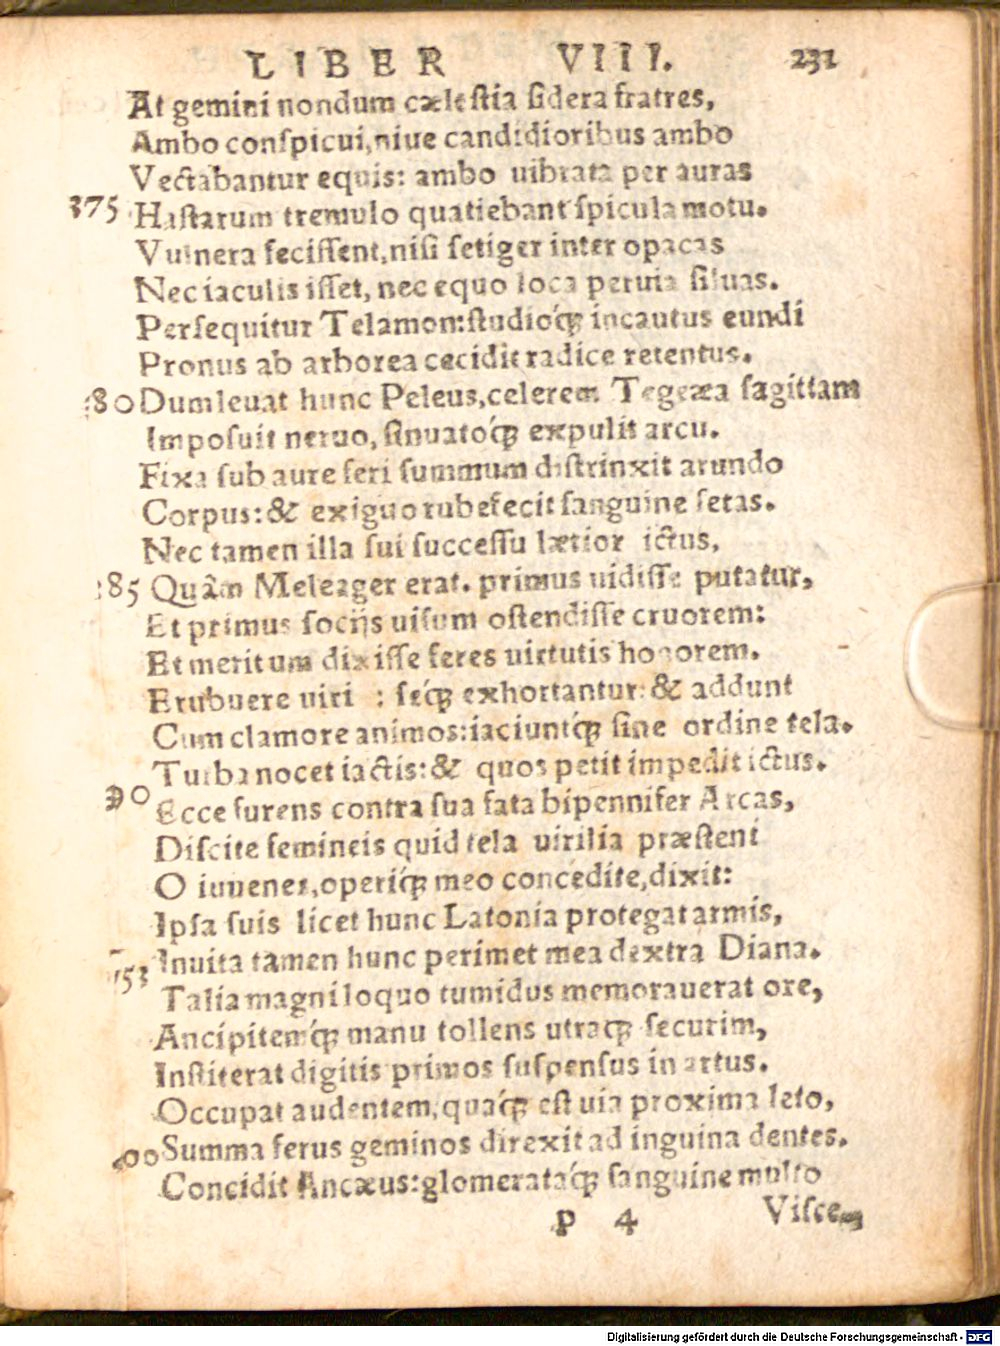 LIBER VIII. 231
At gemini nondum cælestia sidera fratres,
Ambo conſpicui, niue candidioribus ambo
Vectabantur equis: ambo uibrata per auras
375 Haſtarum tremulo quatiebant ſpicula motu.
Vulnera feciſſent, niſi ſetiger inter opacas
Nec iaculis iſſet, nec equo loca peruia ſiluas.
Perſequitur Telamon: ſtudioq́; incautus eundi
Pronus ab arborea cecidit radice retentus.
380 Dum leuat hunc Peleus, celerem Tegeæa ſagittam
Impoſuit neruo, ſinuatoq́; expulit arcu.
Fixa ſub aure feri ſummum diſtrinxit arundo
Corpus: & exiguo rubefecit ſanguine ſetas.
Nec tamen illa ſui ſucceſſu lætior ictus,
385 Quâm Meleager erat. primus uidiſſe putatur,
Et primus ſocijs uiſum oſtendiſſe cruorem:
Et meritum dixiſſe feres uirtutis honorem.
Erubuere uiri : ſeq́; exhortantur: & addunt
Cum clamore animos: iaciuntq́; ſine ordine tela.
Turba nocet iactis: & quos petit impedit ictus.
90 Ecce furens contra ſua fata bipennifer Arcas,
Diſcite femineis quid tela uirilia præſtent
O iuuenes, operiq́; meo concedite, dixit:
Ipſa ſuis licet hunc Latonia protegat armis,
Inuita tamen hunc perimet mea dextra Diana.
Talia magniloquo tumidus memorauerat ore,
Ancipitemq́; manu tollens utraq; ſecurim,
Inſtiterat digitis primos ſuſpenſus in artus.
Occupat audentem, quaq́; eſt uia proxima leto,
400 Summa ferus geminos direxit ad inguina dentes.
Concidit Ancæus: glomerataq́; ſanguine multo
P 4 Viſce-
Digitalisierung gefördert durch die Deutsche Forschungsgemeinschaft - DFG